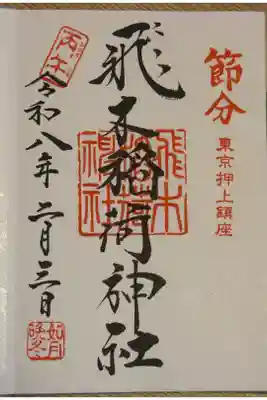 節分
東京押上鎮座
飛木稲荷神社
飛木稲荷神社
丙午
令和八年二月三日
如月